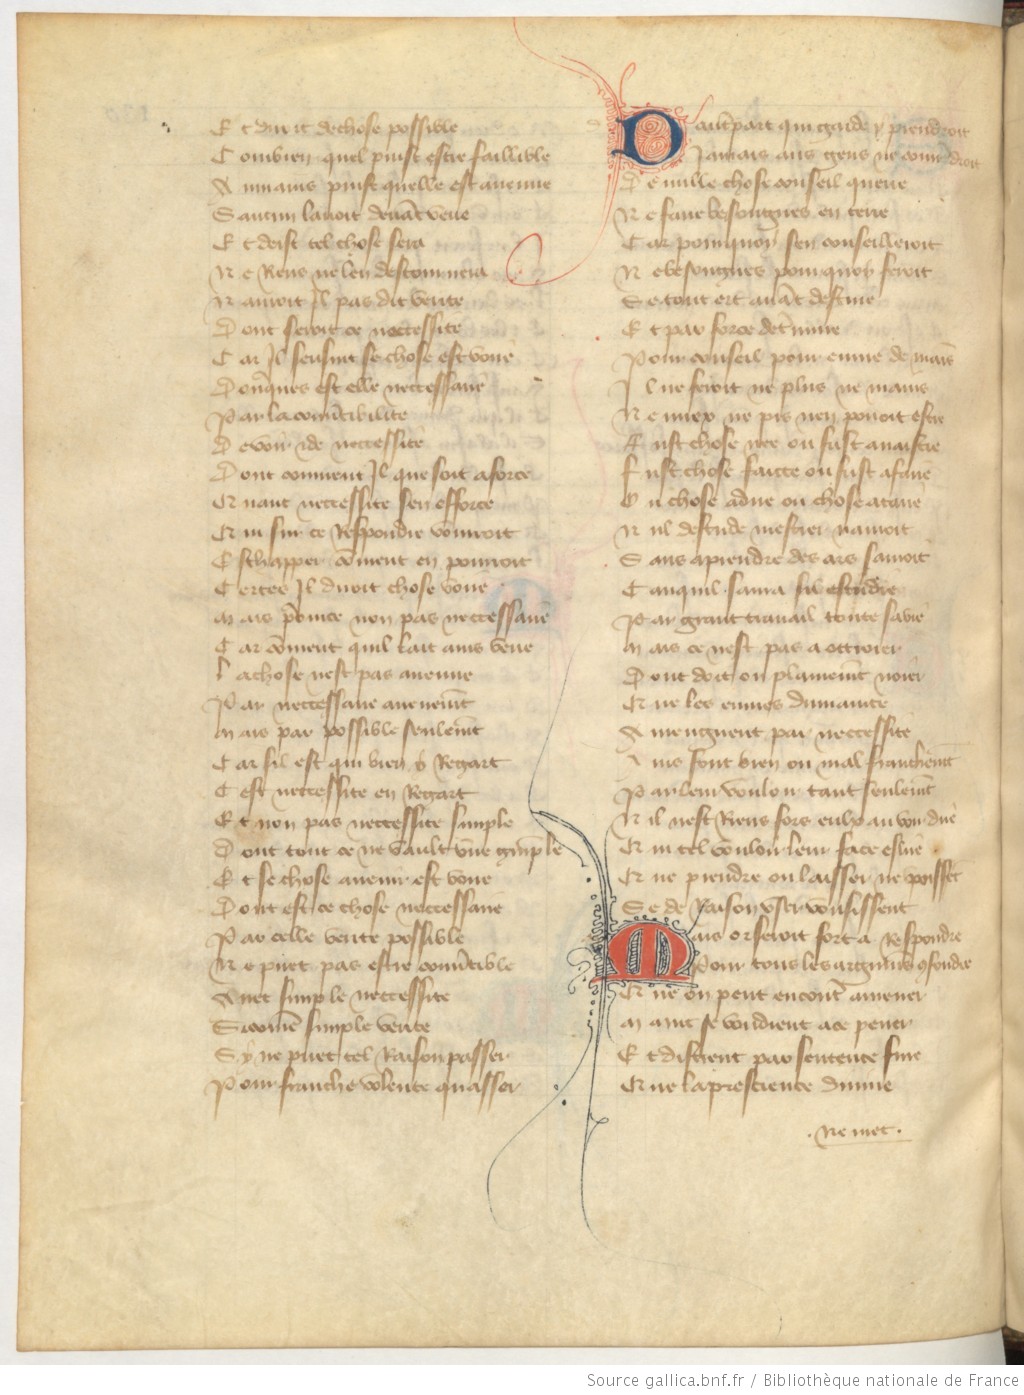 Et diroit de chose possible
Combien quel puist estre faillible
A mains puist quelle est auenue
Saucun lauoit deuāt veue
Et deist tel chose sera
Ne Riens ne len destournera
Nauroit Il pas dit verite
Dont seroit ce neccessite
Car Il sensuit se chose est voire
Donques est elle neccessaire
Par la conūtibilite
De voir &de neccessite
Dont conuient Il que soit a force
Quant neccessite sen efforce
Qui sur ce Respondre vouroit
Eschapper cōment en pourroit
Certes Il diroit chose voire
Mais pource non pas neccessaire
Car cōment quil lait ains veue
La chose nest pas auenue
Par neccessaire auenemt
Mais par possible seulemt
Car sil est qui bien y Regart
Cest neccessite en Regart
Et non pas neccessite simple
Dont tout ce ne vault vne guimple
Et se chose auenir est voire
Dont est ce chose neccessaire
Par celle verite possible
Ne puet pas estre conūtible
Auec simple neccessite
Si comē simple verite
Sy ne puet tel Raison passer
Pour franche volente quasser
Dautrepart qui garde y prendroit
Jamais aus gens ne couuendroit
De nulle chose conseil querre
Ne faire besongnes en terre
Car pourquoy sen conseilleroit
Ne besongnes pourquoy feroit
Se tout ert auāt destine
Et par force detmine
Pour conseil pour euure de mais
Il ne seroit ne plus ne mains
Ne miex ne pis nen pouoit estre
Fust chose nee ou fust a naistre
Fust chose faicte ou fust a faire
Ou chose a dire ou chose a taire
Nul destude mestier nauroit
Sans aprendre des ars sauroit
Canquil saura sil estudie
Par grant trauail toute sa vie
Mais ce nest pas a ottroier
Dont doit on plainemt noier
Que les euures dumanite
Auiengnent par neccessite
Ains font bien ou mal franchemt
Par leur vouloir tant seulemt
Nil nest Riens fors eulx au voir dire
Qui tel vouloir leur face eslire
Que prendre ou laisser ne peussēt
Se de Raison vser voulsissent
Mais or seroit fort a Respondre
Pour tous les argumēs 9fondre
Que on peut encontre amener
Maint se voudrent a ce pener
Et disrent par sentence fine
Que la prescience diuine
. Ne met .
Source gallica.bnf.fr / Bibliothèque nationale de France